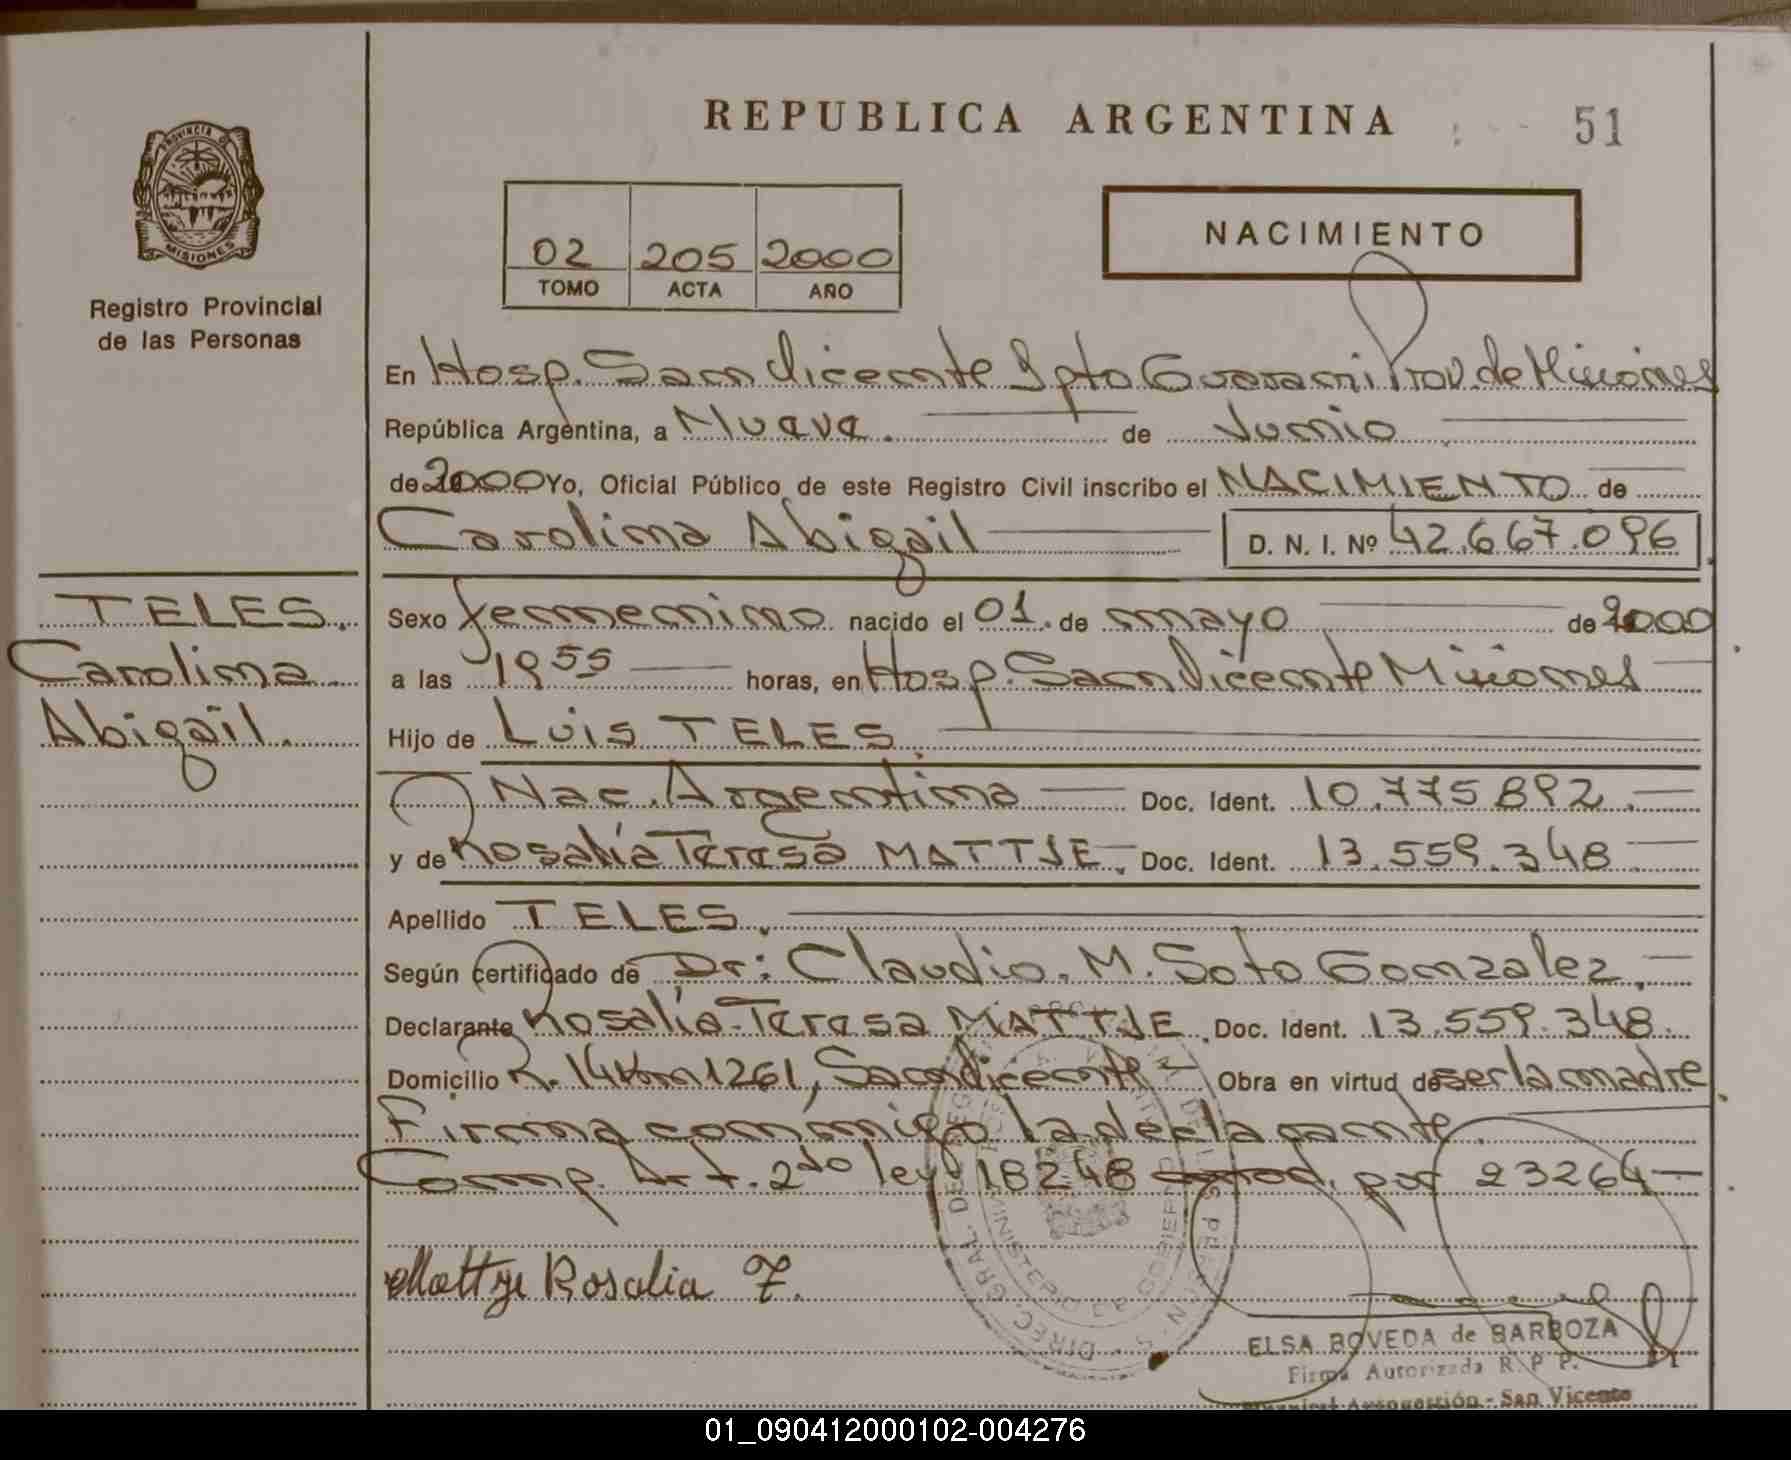 REPUBLICA ARGENTINA
51
PROVINCIA D
MISIONES
Registro Provincial
de las Personas
02 205 2000
TOMO ACTA AÑO
NACIMIENTO
En Hosp. San Vicente Dpto Guarani Prov. de Misiones
República Argentina, a Nueve. de Junio
de 2000 Yo, Oficial Público de este Registro Civil inscribo el NACIMIENTO de
Carolina Abigail D. N. I. Nº 42.667.096
TELES.
Carolina
Abigail.
Sexo femenino nacido el 01. de mayo de 2000
a las 19 55 horas, en Hosp. San Vicente Misiones
Hijo de Luis TELES.
Nac. Argentina Doc. Ident. 10.775892.
y de Rosalía Teresa MATTJE, Doc. Ident. 13.559.348
Apellido TELES.
Según certificado de Dr: Claudio. M. Soto Gonzalez.
Declarante Rosalía Teresa MATTJE. Doc. Ident. 13.559.348.
Domicilio R. 14 Km 1261, San Vicente Obra en virtud de ser la madre
Firma conmigo la declarante.
Comp. Art. 2do ley 18248 mod. por 23264
Mattje Rosalia T.
ELSA BOVEDA de BARBOZA
Firma Autorizada R. P. P.
San Vicente
01_090412000102-004276